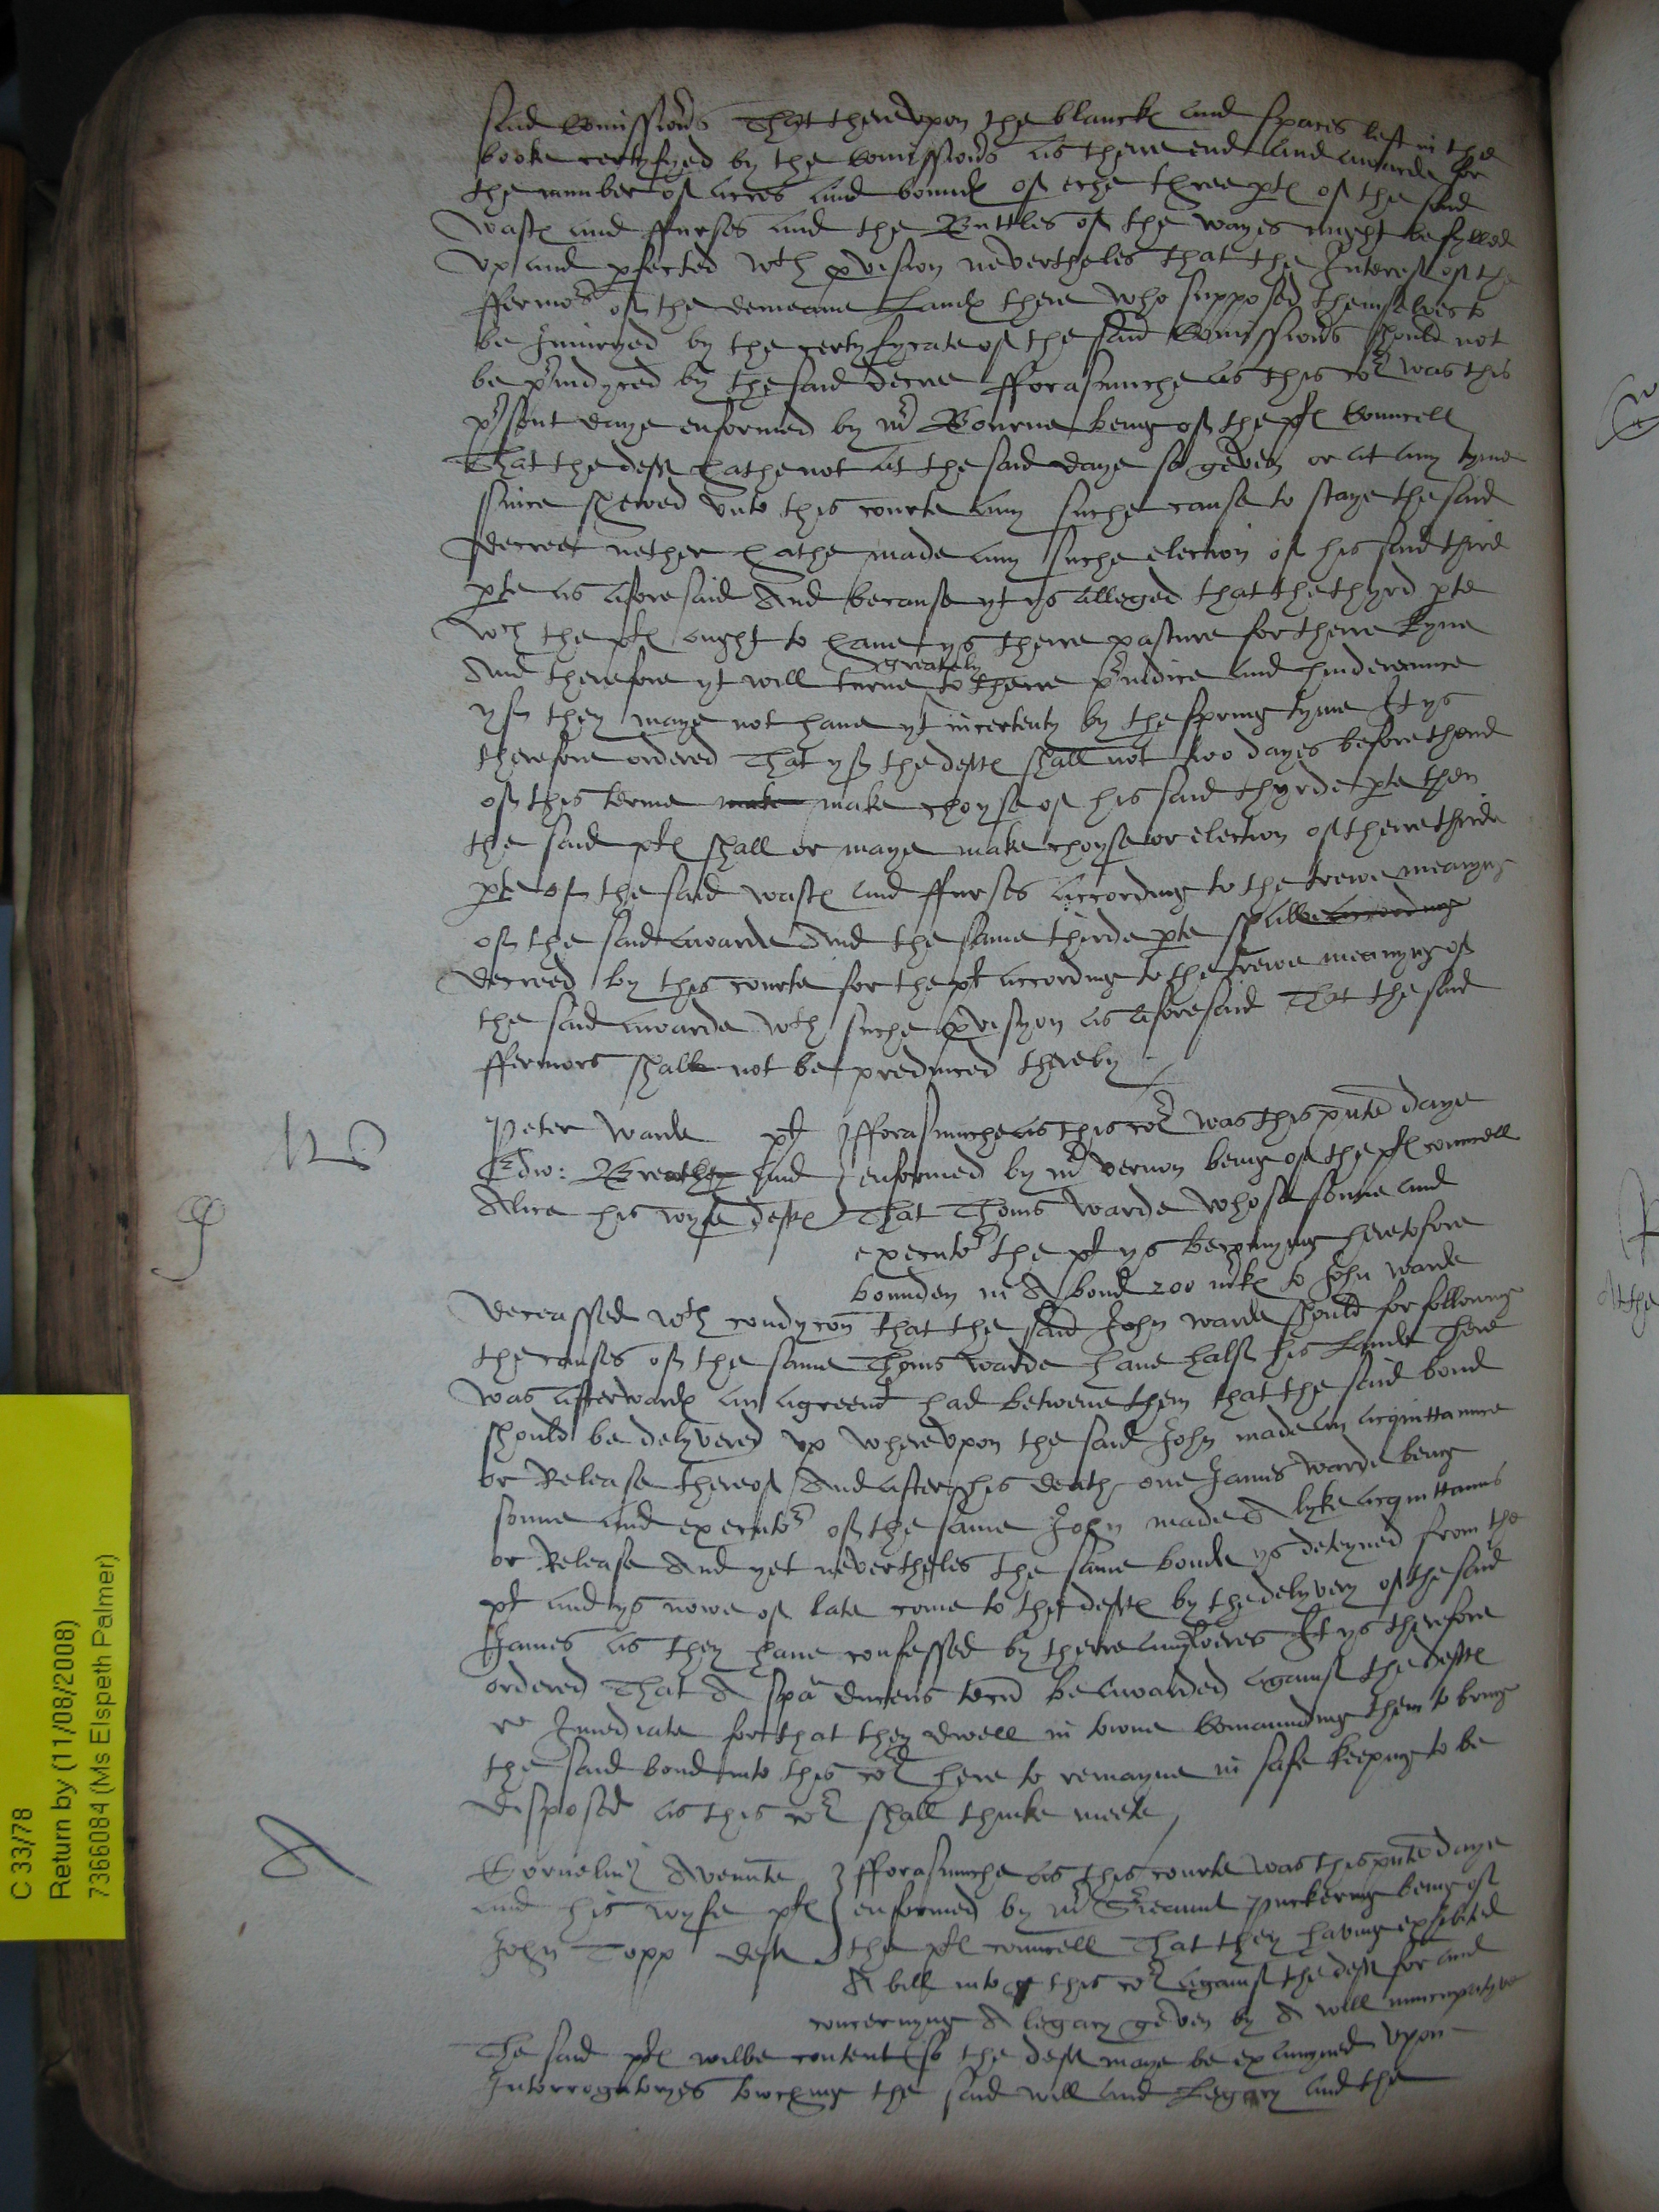 said Comissiors That therevpon the blanck and spaces left in the
booke certyfyed by the Comissiors as there end and awarde for
the number of acres and bound of eche three pt of the said
wast and ffurses and the Buttles of the wayes might be fylled
vp and pfected wth pvision nevertheles that the Interest of the
ffermors of the demeane Land there who supposed themselves to
be Iniuryed by the certyfycate of the said Comissiors should not
be piudyced by the said decree fforasmuche as this cort was this
pssent daye enformed by mr Bourne being of the pl Councell
That the deft hathe not at the said daye so geven or at any tyme
since shewed vnto this courte any suche cause to staye the said
decree nether hathe made any suche election of his said third
pte as aforesaid And because yt ys alleged that the thyrd pte
wch the pl ought to have ys there pasture for there Kyne
greately
And therefore yt will turne to there piudice and hinderaunce
yf they maye not have yt in certenty by the spring tyme It ys
therefore ordered That yf the deft shall not two dayes before thend
of this terme make make choyse of his said thyrde pte then
the said pl shall or maye make choyse or election of there thirde
pte of the said wast and ffurses according to the trewe meanyng
of the said awarde And the same thirde pte shalbe according
decreed by this courte for the pl according to the trewe meanyng of
the said awarde wth suche pvisyon as aforesaid That the said
ffermors shall not be preduiced thereby
Peter Warde pl
Edw: and
Alice his wyfe deft
fforasmuche as this cort was this pnte daye
enformed by mr Vernon being of the pl councell
That Thoms Warde whose sonne and
executor the pl ys heretofore
bounden in A bond 200 mrk to John Warde
deceassed wth condycon that the said John warde should for following
the causes of the same Thoms Warde have half his Lande There
was afterward an agreemt had betwene them that the said bond
should be delyvered vp wherevpon the said John made an acquittaunce
or Release thereof And after his death one James Warde being
sonne and executor of the same John made A lyke acquittaunce
or Release And yet nevertheles the same bonde ys deteyned from the
pl and ys nowe of late come to the deft by the delyvery of the said
James as they have confessed by there aunsweres It ys therefore
ordered That A spa ducens tecu be awarded against the deft
re Imediate for that they dwell in towne Comaunding them to bring
the said bond into this cort here to remayne in safe keeping to be
disposed as this cort shall thinke meete
A
Cornelius Avennte
and his wyfe pl
John Topp deft
fforasmuche as this courte was this pnte daye
enformed by mr Sieaunt Puckering being of
the pl councell That they having exhibited
A bill into this cort against the deft for and
concernyng A legacy geven by A will nuncupatyve
The said pl wilbe content (so the deft maye be examyned vpon
Interrogatoryes towching the said will and Legacy and the
C 33/78
Return by (11/08/2008)
7366084 (Ms Elspeth Palmer)